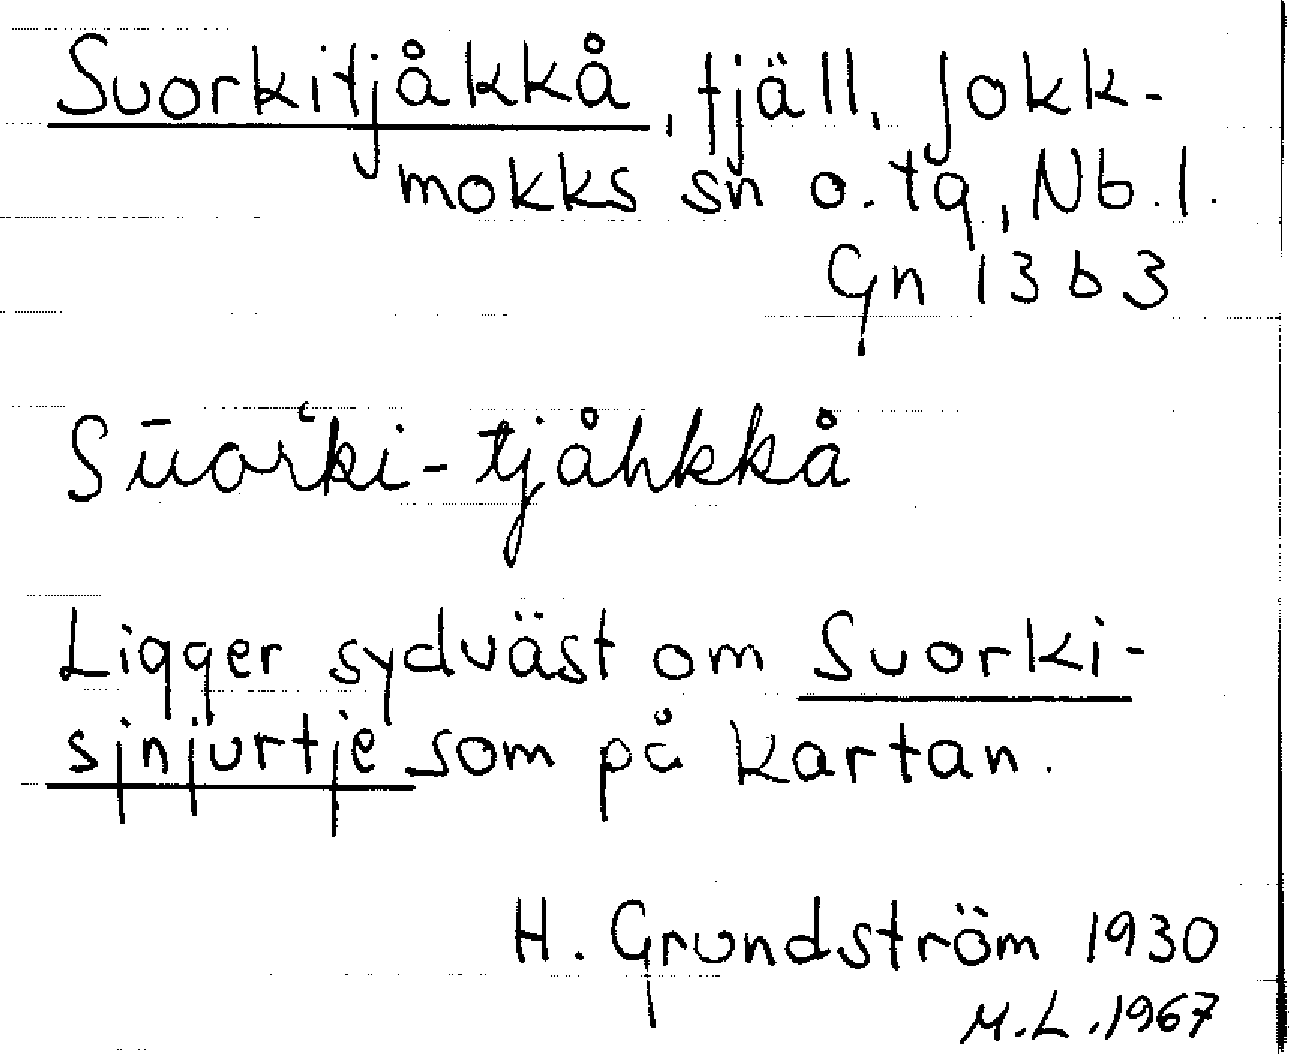 Suorkitjåkkå, fjäll, Jokk-
mokks sn o. tg, Nb. l.
Gn 13 b 3
Sūorʻki-tjåhkkå
Ligger sydväst om Suorki-
sjnjurtje som på kartan.
H. Grundström 1930
M.L.1967